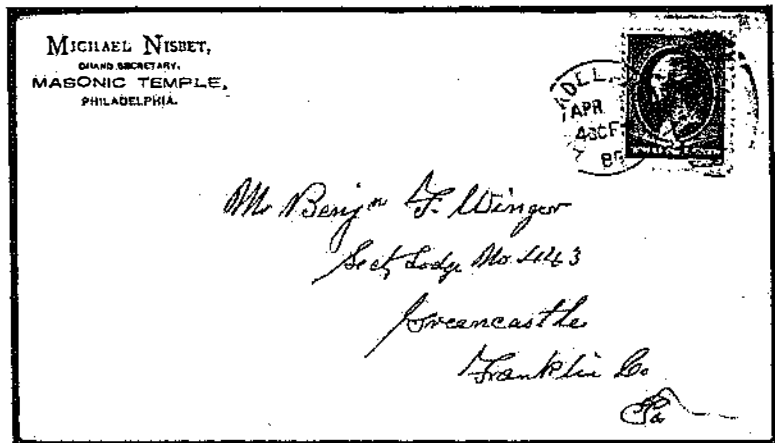 MICHAEL NISBET,
GRAND SECRETARY,
MASONIC TEMPLE,
PHILADELPHIA.
APR
4
8
Mr Benjn F. Winger
Sect, Lodge No. 443
Greencastle
Franklin Co
Pa